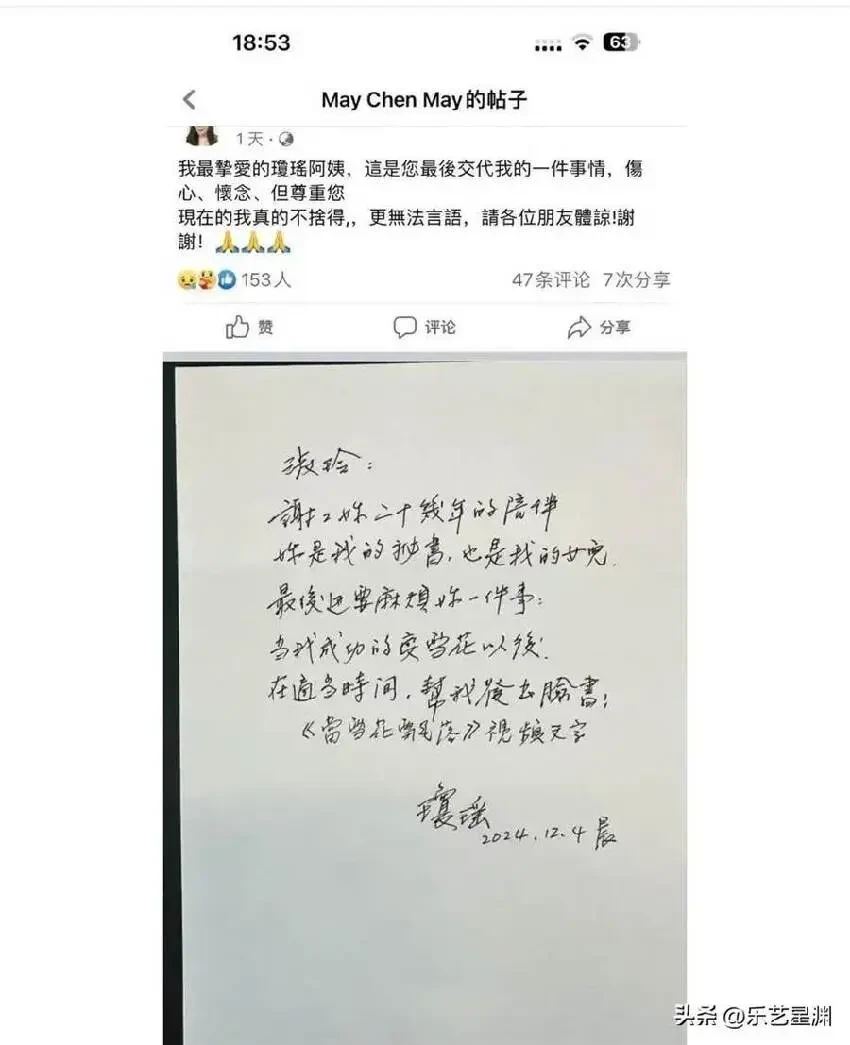 18:53
63
May Chen May的帖子
1天·
我最摯愛的瓊瑤阿姨，這是您最後交代我的一件事情，傷
心、懷念、但尊重您
現在的我真的不捨得,，更無法言語，請各位朋友體諒!謝
謝！🙏🙏🙏
153人
47条评论 7次分享
赞
评论
分享
淑玲：
謝謝妳二十幾年的陪伴
妳是我的秘書，也是我的女兒。
最後还要麻煩妳一件事：
当我成功的变雪花以後，
在適当時间，幫我發出臉書；
《當雪花飄落》視頻文字
瓊瑤
2024.12.4 晨
头条 @乐艺星渊